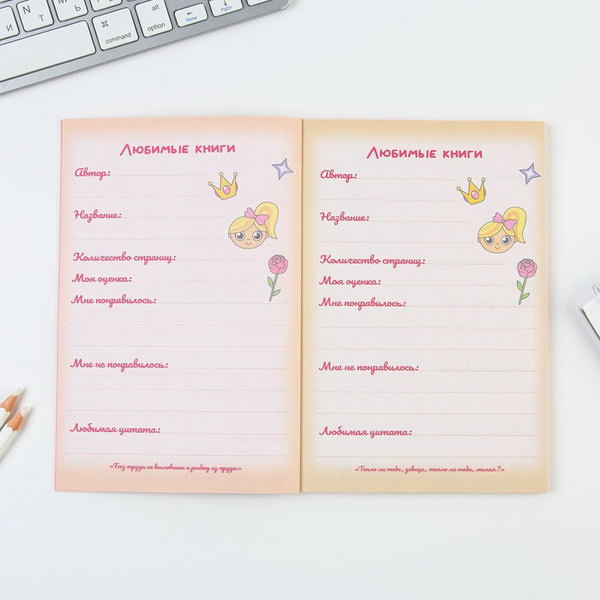 command
alt
option
Любимые книги
Автор:
Название:
Количество страниц:
Моя оценка:
Мне понравилось:
Мне не понравилось:
Любимая цитата:
«Без труда не выловишь и рыбку из пруда»
Любимые книги
Автор:
Название:
Количество страниц:
Моя оценка:
Мне понравилось:
Мне не понравилось:
Любимая цитата:
«Тепло ли тебе, девица, тепло ли тебе, милая?»